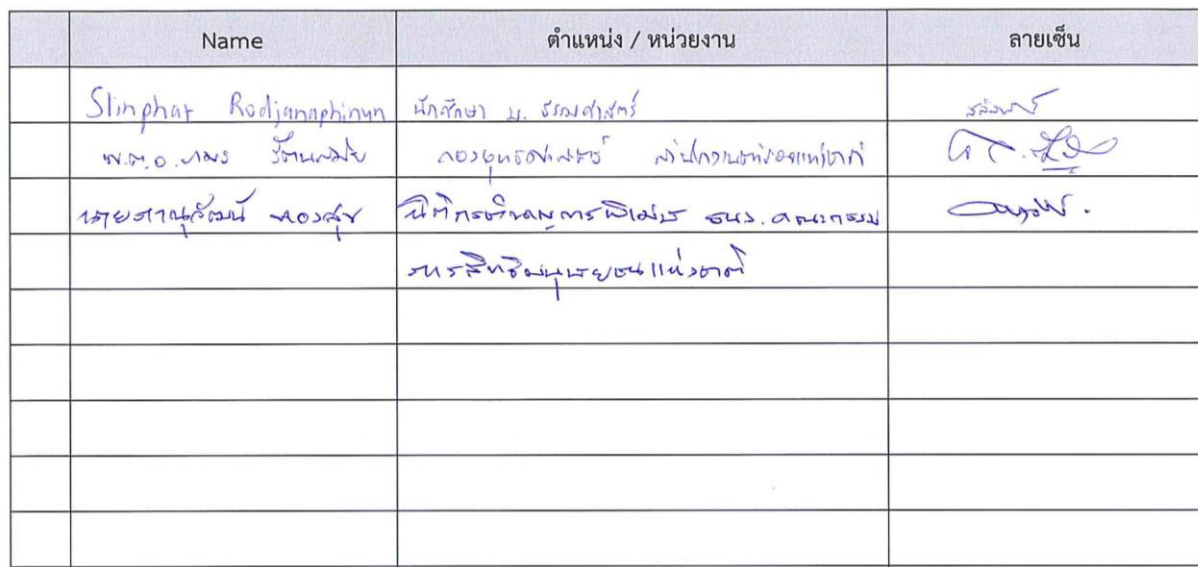 Name ตำแหน่ง / หน่วยงาน ลายเซ็น
Slinphat Rodjanaphinun นักศึกษา ม. ธรรมศาสตร์
พ.ต.อ. กองยุทธศาสตร์ สำนักงานตำรวจแห่งชาติ
นายภาณุวัฒน์ ทองสุข นิติกรชำนาญการพิเศษ สนง. คณะกรรม
การสิทธิมนุษยชนแห่งชาติ